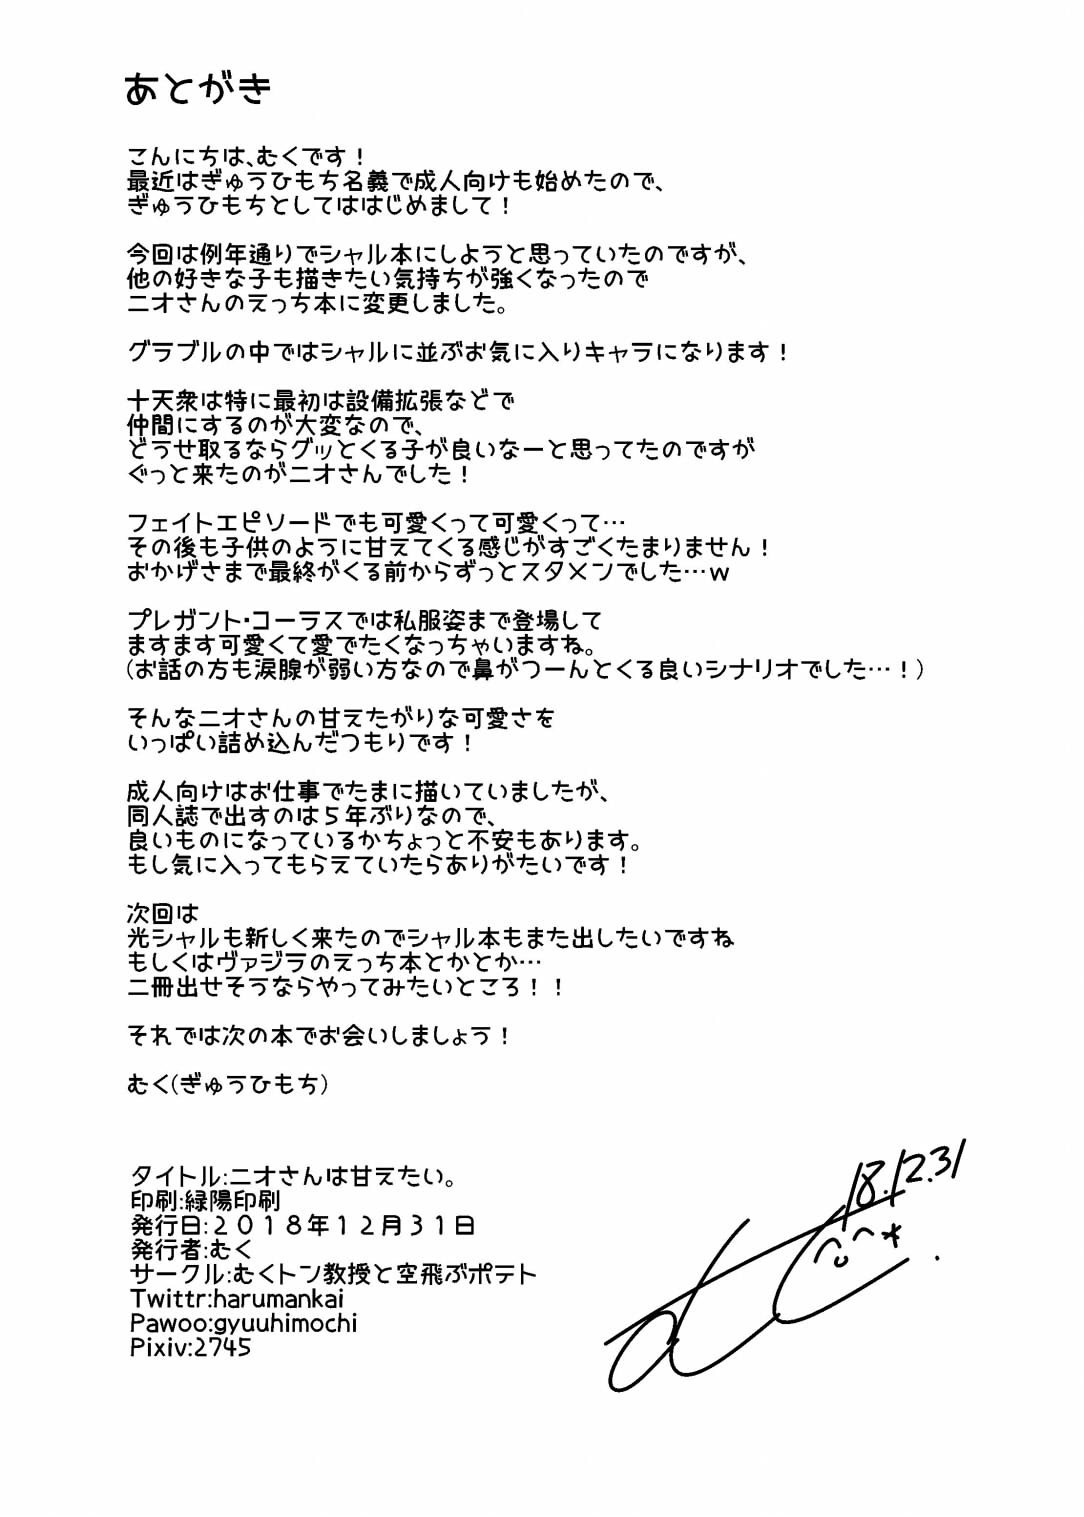 あとがき
こんにちは、むくです！
最近はぎゅうひもち名義で成人向けも始めたので、
ぎゅうひもちとしてははじめまして！
今回は例年通りでシャル本にしようと思っていたのですが、
他の好きな子も描きたい気持ちが強くなったので
ニオさんのえっち本に変更しました。
グラブルの中ではシャルに並ぶお気に入りキャラになります！
十天衆は特に最初は設備拡張などで
仲間にするのが大変なので、
どうせ取るならグッとくる子が良いなーと思ってたのですが
ぐっと来たのがニオさんでした！
フェイトエピソードでも可愛くって可愛くって…
その後も子供のように甘えてくる感じがすごくたまりません！
おかげさまで最終がくる前からずっとスタメンでした…w
プレガント・コーラスでは私服姿まで登場して
ますます可愛くて愛でたくなっちゃいますね。
(お話の方も涙腺が弱い方なので鼻がつーんとくる良いシナリオでした…！)
そんなニオさんの甘えたがりな可愛さを
いっぱい詰め込んだつもりです！
成人向けはお仕事でたまに描いていましたが、
同人誌で出すのは５年ぶりなので、
良いものになっているかちょっと不安もあります。
もし気に入ってもらえていたらありがたいです！
次回は
光シャルも新しく来たのでシャル本もまた出したいですね
もしくはヴァジラのえっち本とかとか…
二冊出せそうならやってみたいところ！！
それでは次の本でお会いしましょう！
むく(ぎゅうひもち)
タイトル:ニオさんは甘えたい。
印刷:緑陽印刷
発行日:２０１８年１２月３１日
発行者:むく
サークル:むくトン教授と空飛ぶポテト
Twittr:harumankai
Pawoo:gyuuhimochi
Pixiv:2745
18.12.31